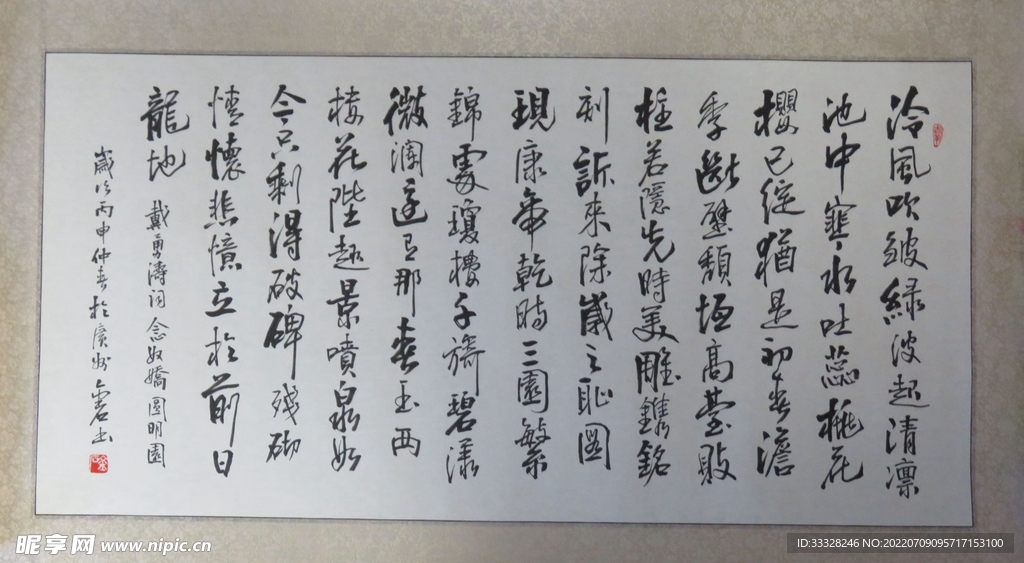 冷風吹皴綠波起清凛
池中寒水吐蕊桃花
櫻已綻猶是初春澹
季斷壁頹垣高臺敗
柱若隱先時美雕鐫銘
刻訴來除歲之耻園
現康帝乾時三園繁
錦處瓊樓千旖碧漾
微瀾還有那春玉西
樓花陛趣景噴泉如
今只剩得破碑殘砌
情懷悲憶立於前日
龍地 戴勇濤詞 念奴嬌 圓明園
歲次丙申仲春於廣州 書
昵享网 www.nipic.cn
ID:33328246 NO:20220709095717153100